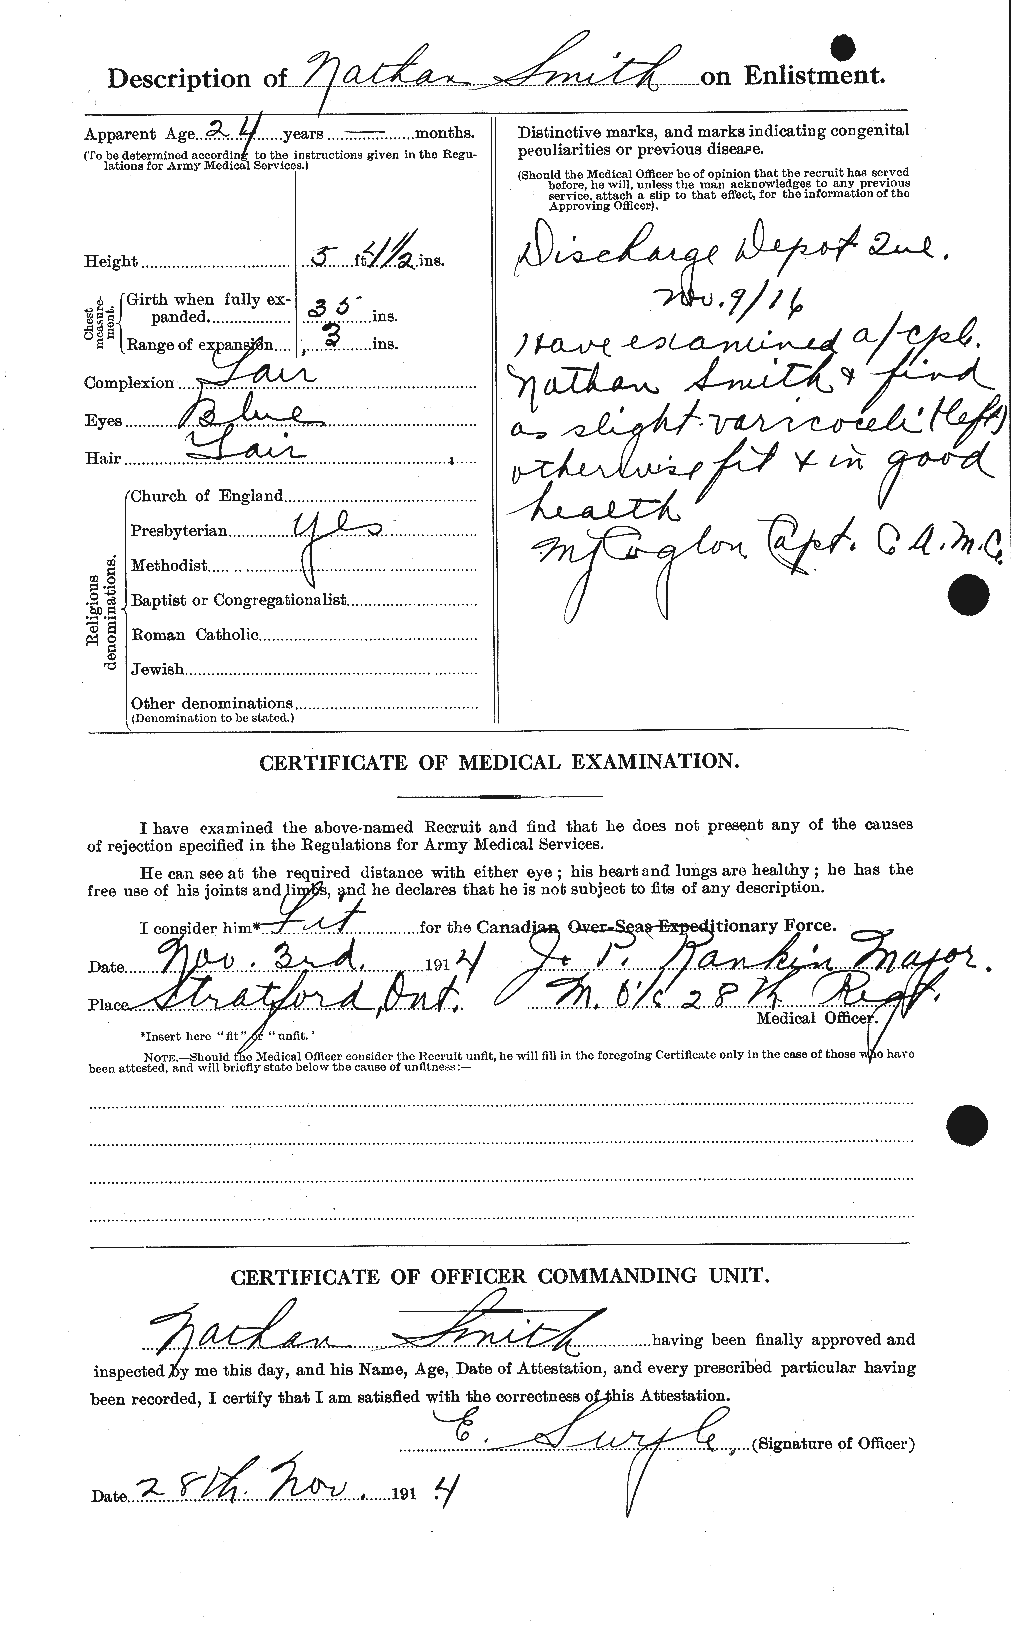 Description of Nathan Smith on Enlistment.
Apparent Age 24 years — months.
(To be determined according to the instructions given in the Regu-
lations for Army Medical Services.)
Height 5 ft 4 1/2 ins.
Chest measure-ment.
Girth when fully ex-
panded 35 ins.
Range of expansion 3 ins.
Complexion Fair
Eyes Blue
Hair Fair
Religious denominations.
Church of England
Presbyterian Yes
Methodist
Baptist or Congregationalist
Roman Catholic
Jewish
Other denominations
(Denomination to be stated.)
Distinctive marks, and marks indicating congenital
peculiarities or previous disease.
(Should the Medical Officer be of opinion that the recruit has served
before, he will, unless the man acknowledges to any previous
service, attach a slip to that effect, for the information of the
Approving Officer).
Discharge Depot Que.
Nov. 9/16
Have examined a/cpl.
Nathan Smith & find
as slight varicocele (left)
otherwise fit & in good
health
Capt. C.A.M.C.
CERTIFICATE OF MEDICAL EXAMINATION.
I have examined the above-named Recruit and find that he does not present any of the causes
of rejection specified in the Regulations for Army Medical Services.
He can see at the required distance with either eye; his heart and lungs are healthy; he has the
free use of his joints and limbs, and he declares that he is not subject to fits of any description.
I consider him* Fit for the Canadian Over-Seas Expeditionary Force.
Date Nov. 3rd. 1914 J. P. Rankin Major.
Place Stratford, Ont. M. O. i/c 28th Regt.
Medical Officer.
*Insert here "fit" or "unfit."
NOTE.—Should the Medical Officer consider the Recruit unfit, he will fill in the foregoing Certificate only in the case of those who have
been attested, and will briefly state below the cause of unfitness:—
CERTIFICATE OF OFFICER COMMANDING UNIT.
Nathan Smith having been finally approved and
inspected by me this day, and his Name, Age, Date of Attestation, and every prescribed particular having
been recorded, I certify that I am satisfied with the correctness of this Attestation.
E. (Signature of Officer)
Date 28th. Nov. 1914